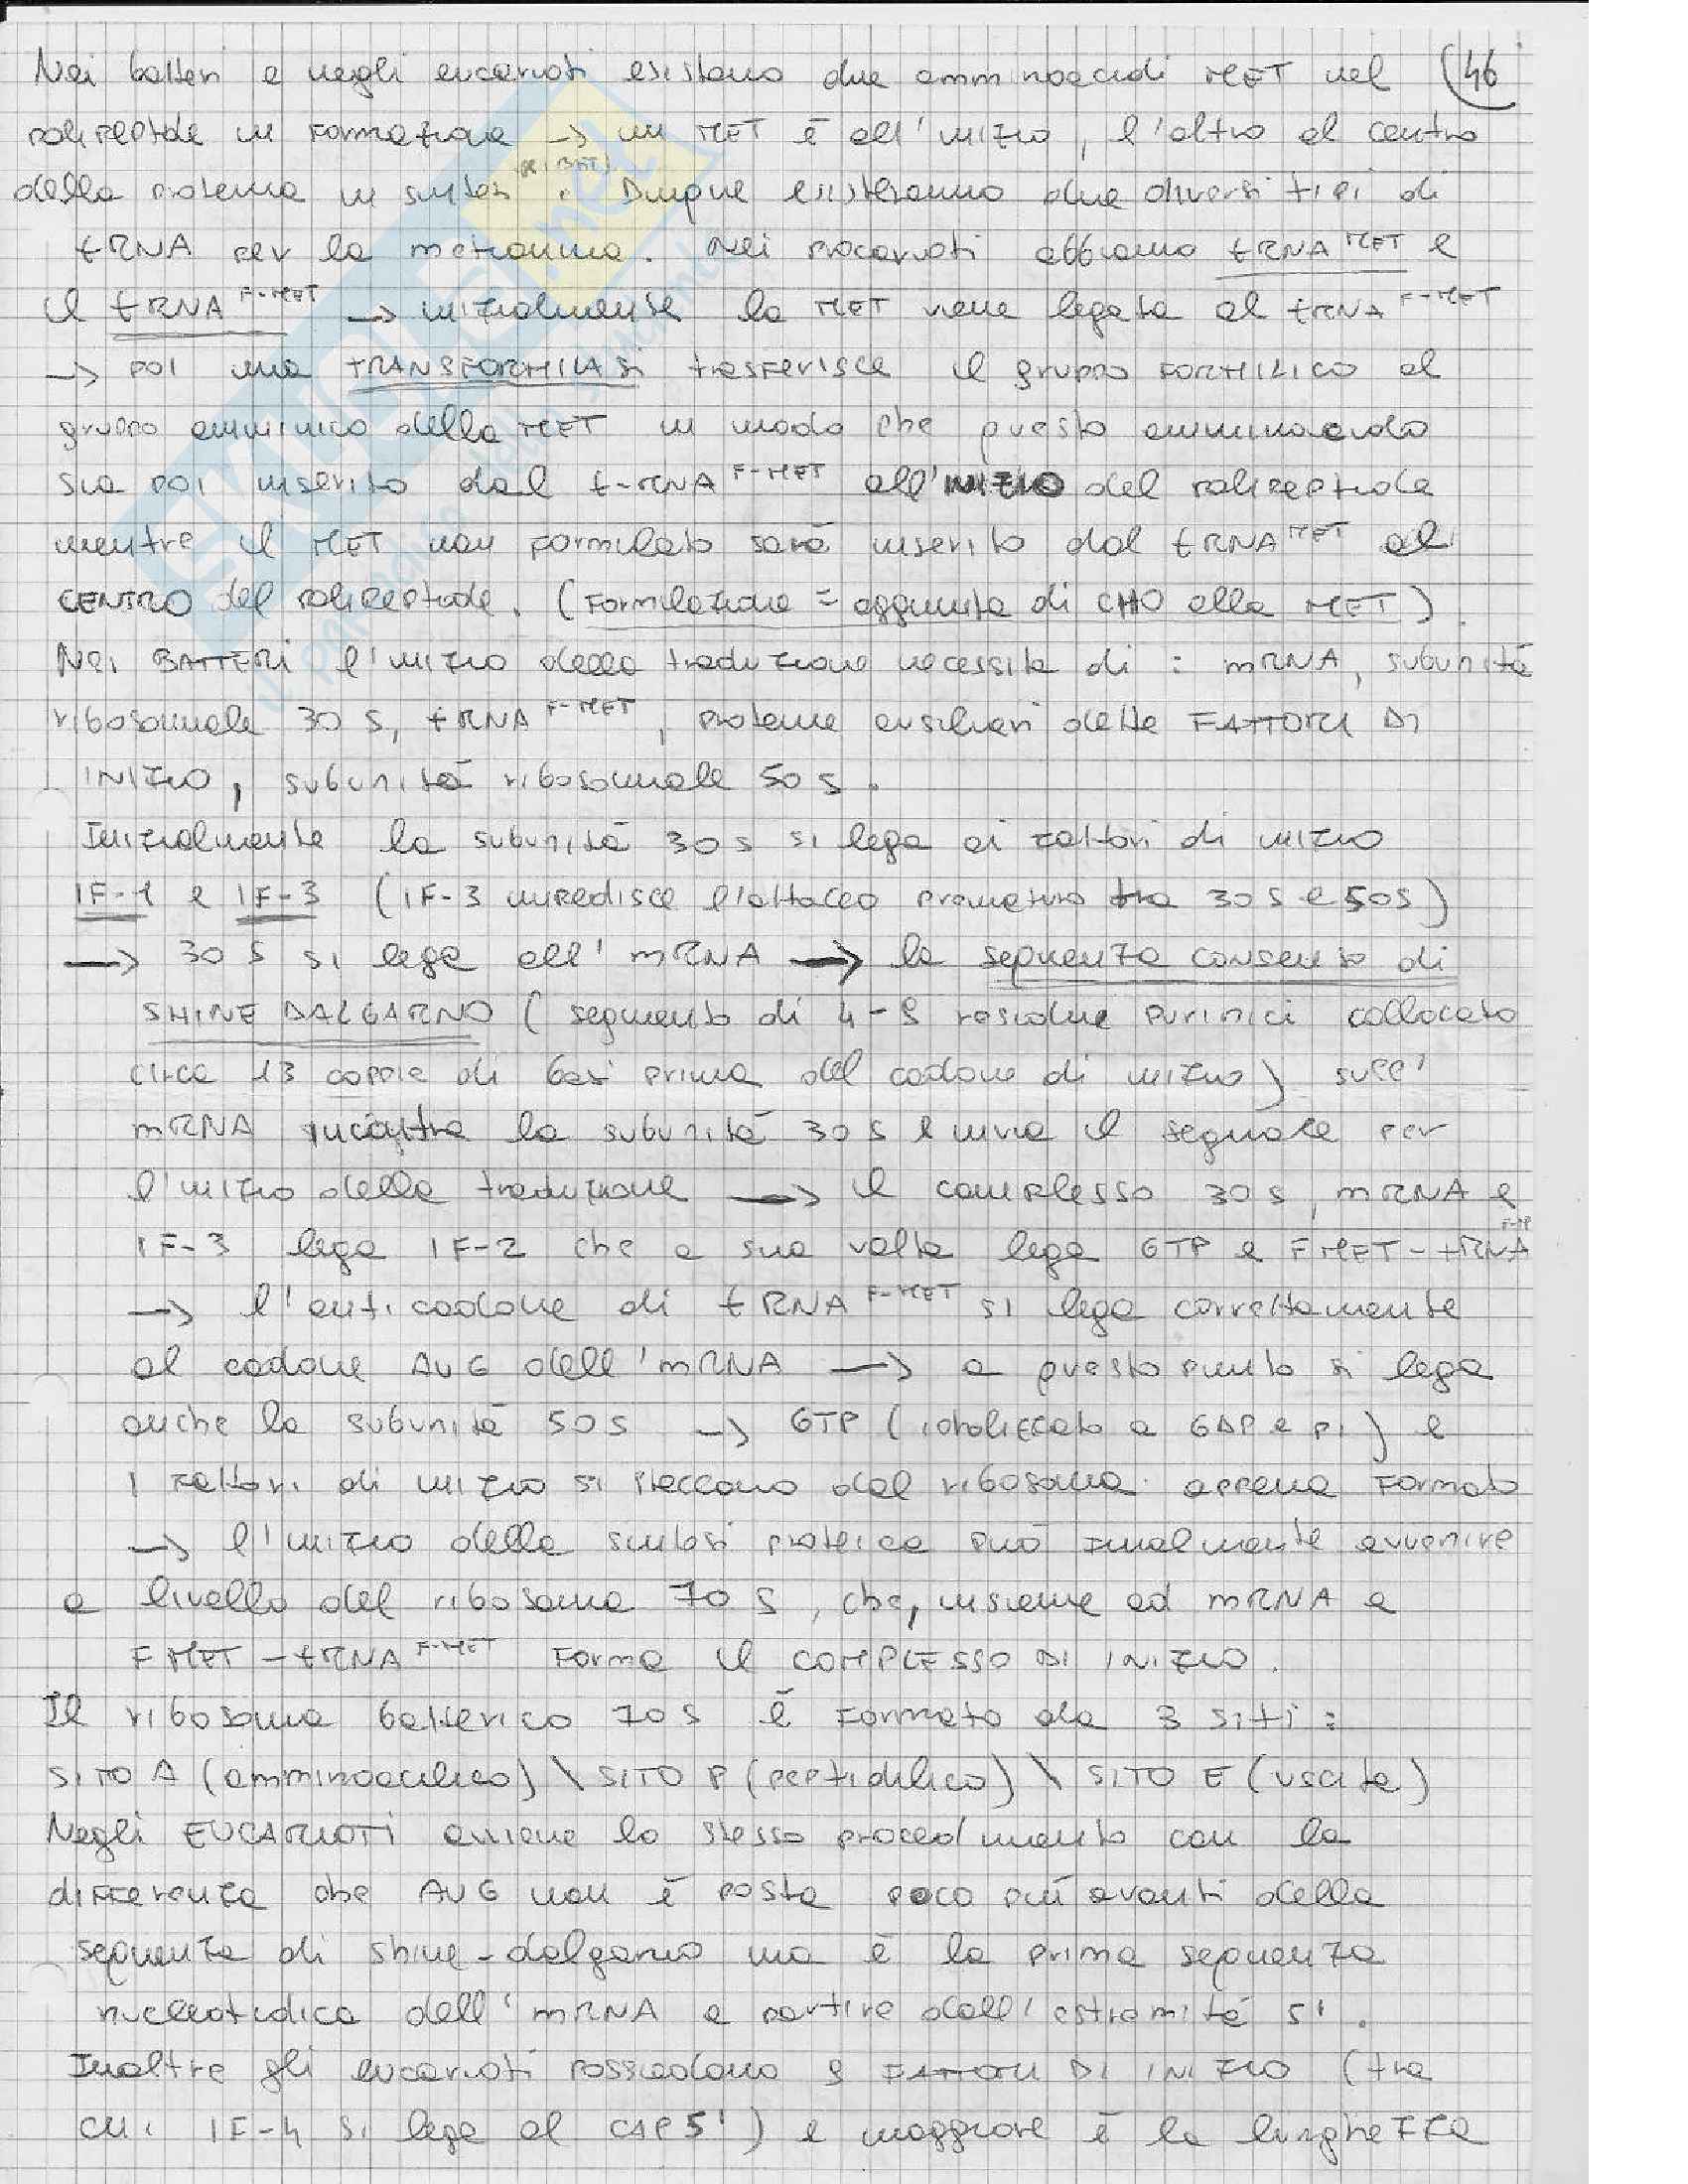 Nei batteri e negli eucarioti esistono due amminoacidi MET nel (46
polipeptide in formazione → un MET è all'inizio, l'altro al centro
(DEI BAT)
della proteina in sintesi. Dunque esisteranno due diversi tipi di
tRNA per la metionina. Nei procarioti abbiamo tRNA MET e
il tRNA F-MET → inizialmente la MET viene legata al tRNA F-MET
→ poi una TRANSFORMILASI trasferisce il gruppo FORMILICO al
gruppo amminico della MET in modo che questo amminoacido
sia poi inserito dal t-RNA F-MET all'INIZIO del polipeptide
mentre il MET non formilato sarà inserito dal tRNA MET al
CENTRO del polipeptide. (Formilazione = aggiunta di CHO alla MET).
Nei BATTERI l'inizio della traduzione necessita di : mRNA, subunità
ribosomale 30 S, tRNA F-MET, proteine ausiliari dette FATTORI DI
INIZIO, subunità ribosomale 50 S.
Inizialmente la subunità 30 S si lega ai fattori di inizio
IF-1 e IF-3 (IF-3 impedisce l'attacco prematuro tra 30 S e 50S)
→ 30 S si lega all' mRNA → la sequenza consenso di
SHINE DALGARNO (segmento di 4-8 residui purinici collocato
circa 13 coppie di basi prima del codone di inizio) sull'
mRNA incastra la subunità 30 S e invia il segnale per
l'inizio della traduzione → il complesso 30 S, mRNA e
IF-3 lega IF-2 che a sua volta lega GTP e FMET-tRNA
→ l'anticodone di tRNA F-MET si lega correttamente
al codone AUG dell'mRNA → a questo punto si lega
anche la subunità 50 S → GTP (idrolizzato a GDP e Pi) e
i fattori di inizio si staccano dal ribosoma appena formato
→ l'inizio della sintesi proteica può finalmente avvenire
a livello del ribosoma 70 S, che, insieme ad mRNA e
FMET-tRNA F-MET forma il COMPLESSO DI INIZIO.
Il ribosoma batterico 70 S è formato da 3 siti :
SITO A (amminoacilico) \ SITO P (peptidilico) \ SITO E (uscita)
Negli EUCARIOTI avviene lo stesso procedimento con la
differenza che AUG non è posta poco più avanti della
sequenza di shine-dalgarno ma è la prima sequenza
nucleotidica dell'mRNA a partire dall'estremità 5'.
Inoltre gli eucarioti possiedono 9 FATTORI DI INIZIO (tra
cui IF-4 si lega al CAP 5') e maggiore è la lunghezza